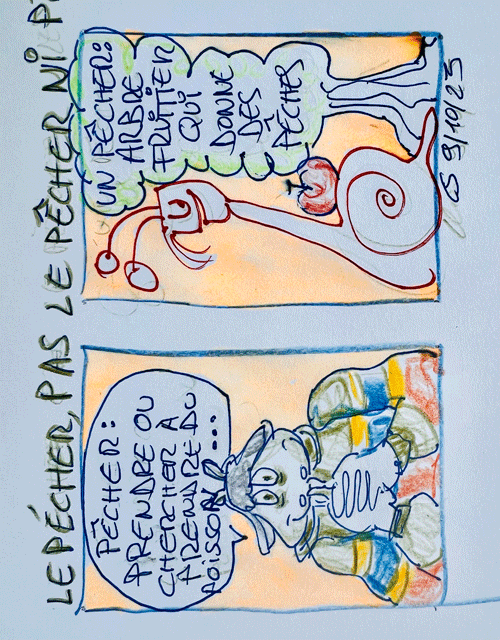 LE PÉCHER, PAS LE PÊCHER NI
PÊCHER:
PRENDRE OU
CHERCHER À
PRENDRE DU
POISSON...
UN PÊCHER:
ARBRE
FRUITIER
QUI
DONNE
DES
PÊCHES